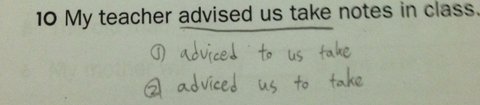 10 My teacher advised us take notes in class.
① adviced to us take
② adviced us to take